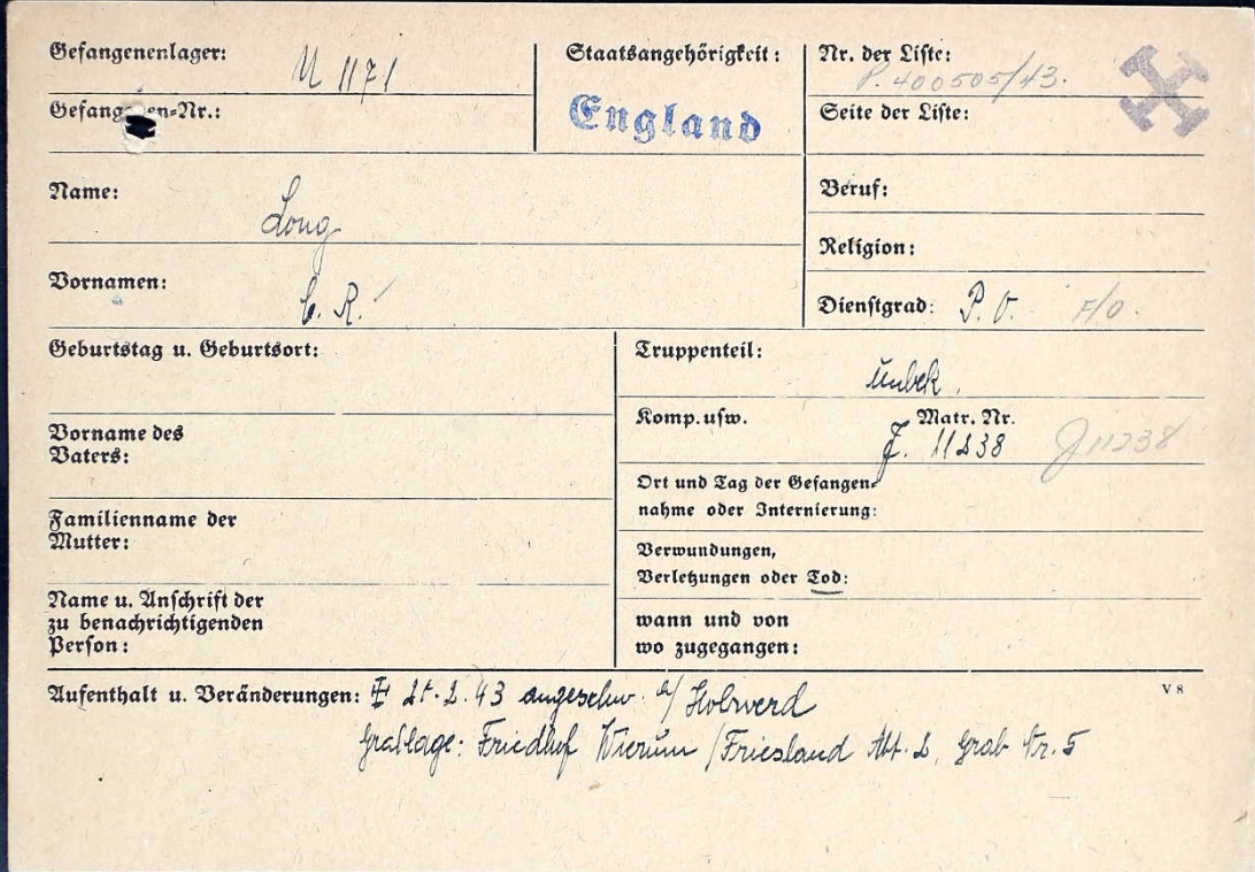 Gefangenenlager: U 1171
Staatsangehörigkeit:
Nr. der Liste: P. 400505/43.
Gefang en-Nr.:
England
Seite der Liste:
Name: Long
Beruf:
Religion:
Vornamen: C. R.
Dienstgrad: P. O. F/O.
Geburtstag u. Geburtsort:
Truppenteil: unbek.
Komp. usw.
Matr. Nr.
J. 11238 J11238
Vorname des
Vaters:
Ort und Tag der Gefangen-
nahme oder Internierung:
Familienname der
Mutter:
Verwundungen,
Verletzungen oder Tod:
Name u. Anschrift der
zu benachrichtigenden
Person:
wann und von
wo zugegangen:
Aufenthalt u. Veränderungen: 2.43 angeschw. a/ Holwerd
V 8
Grablage: Friedhof Wierum / Friesland Abt. 2, Grab Nr. 5